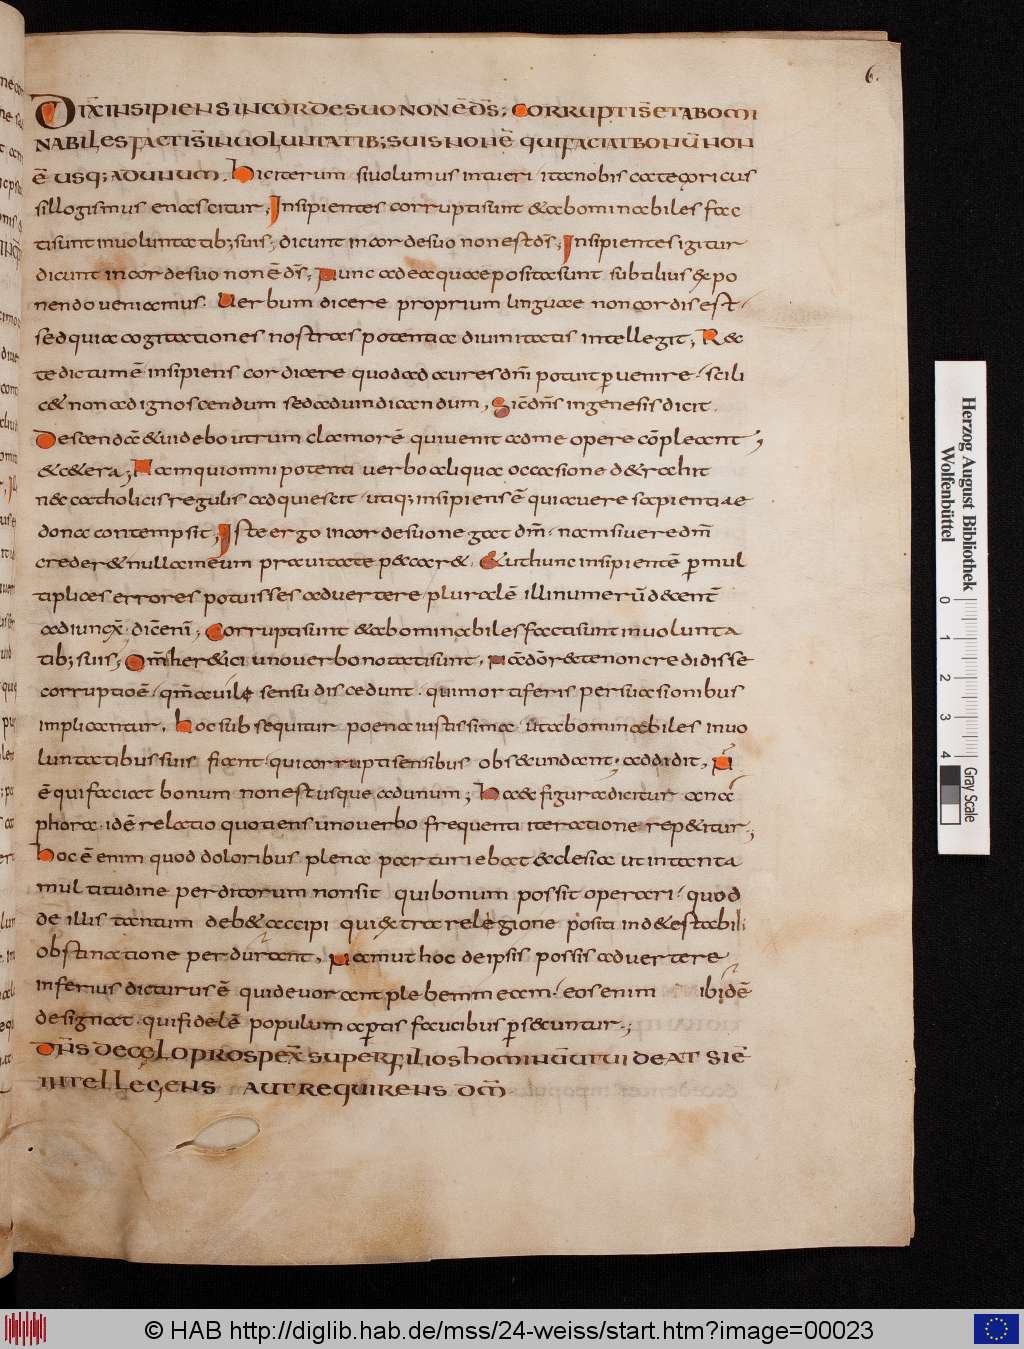 6.
DIX INSIPIENS IN CORDE SUO NON Ē D̄S; CORRUPTI S̄ ET ABOMI
NABILES FACTI S̄ IN UOLUNTATIB; SUIS NON Ē QUI FACIAT BONŪ NON
Ē USQ; AD UNUM. Hic iterum si uolumus intueri ita nobis categoricus
sillogismus enascitur; Insipientes corrupti sunt & abominabiles fac
ti sunt in uoluntatib; suis; dicunt in corde suo non est d̄s; Insipientes igitur
dicunt in corde suo non ē d̄s; Nunc ad ea quae posita sunt subtilius expo
nendo ueniamus. Uerbum dicere proprium linguae non cordis est.
sed quia cogitationes nostras potentia diuinitatis intellegit; Rec
te dictum ē insipiens cor dicere quod ad aures dn̄i potuit ꝑuenire. scili
c& non ad ignoscendum sed ad uindicandum; Sic dn̄s in genesis dicit.
Descendā & uidebo utrum clamorē qui uenit ad me opere cōpleant;
& c&era; Nam qui omnipotenti uerbo aliqua occasione d&rahit
nec catholicis regulis adquiescit. utiq; insipiens ē qui a uere sapientiae
dona contempsit; Iste ergo in corde suo negat dm̄. nam si uere dm̄
creder& nulla in eum prauitate peccar&. Et ut hunc insipientē ꝑ mul
tiplices errores potuisses aduertere pluralē illi numerū decent̄
adiunx̄. dicen̄; Corrupti sunt & abominabiles facti sunt in uolunta
tib; suis; Om̄s her&ici uno uerbo notati sunt, credidisse
corruptioē. qm̄ a uilē sensu discedunt. qui mortiferis persuasionibus
implicantur. Hoc subsequitur poena iustissima ut abominabiles in uo
luntatibus suis fiant. qui corrupti sensibus obsecundant. addidit, N̄
ē qui faciat bonum non est usque ad unum; Haec figura dicitur ana
phora. idē relatio quotiens uno uerbo frequenti iteratione rep&itur;
Hoc ē enim quod doloribus plena parturiebat ecclesia ut in tanta
multitudine perditorum non sit qui bonum possit operari. quod
de illis tantum deb& accipi qui extra relegione positi in detestabili
obstinatione perdurant, Nam ut hoc de ipsis possis aduertere
inferius dicturus ē qui deuorant plebem meam. eos enim ibidē
designat. qui fidelē populum aptis faucibus ꝑsecuntur;
DN̄S DE CELO PROSPEX̄ SUPER FILIOS HOMINŪ UT UIDEAT SI Ē
INTELLEGENS AUT REQUIRENS DM̄
Herzog August Bibliothek
Wolfenbüttel
0 1 2 3 4
Gray Scale
© HAB http://diglib.hab.de/mss/24-weiss/start.htm?image=00023